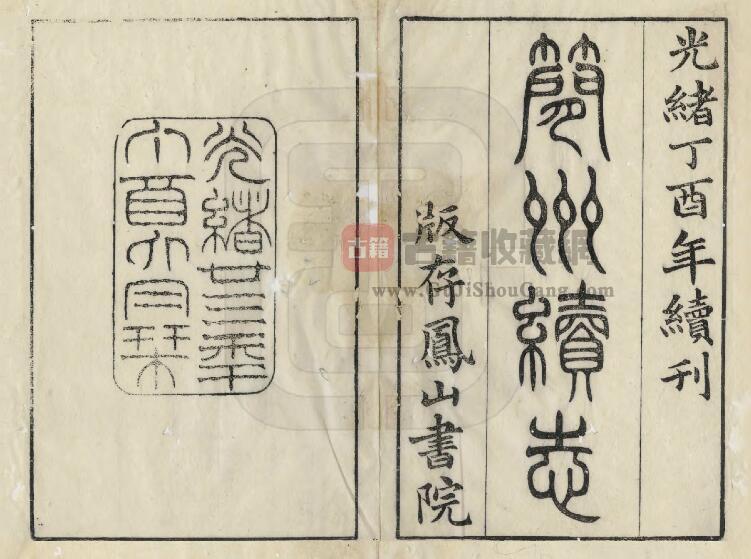 光緒丁酉年續刊
簡州續志
版存鳳山書院
光緒廿三年
丁酉六月栞
古籍 古籍收藏網
www.GuJiShouCang.com